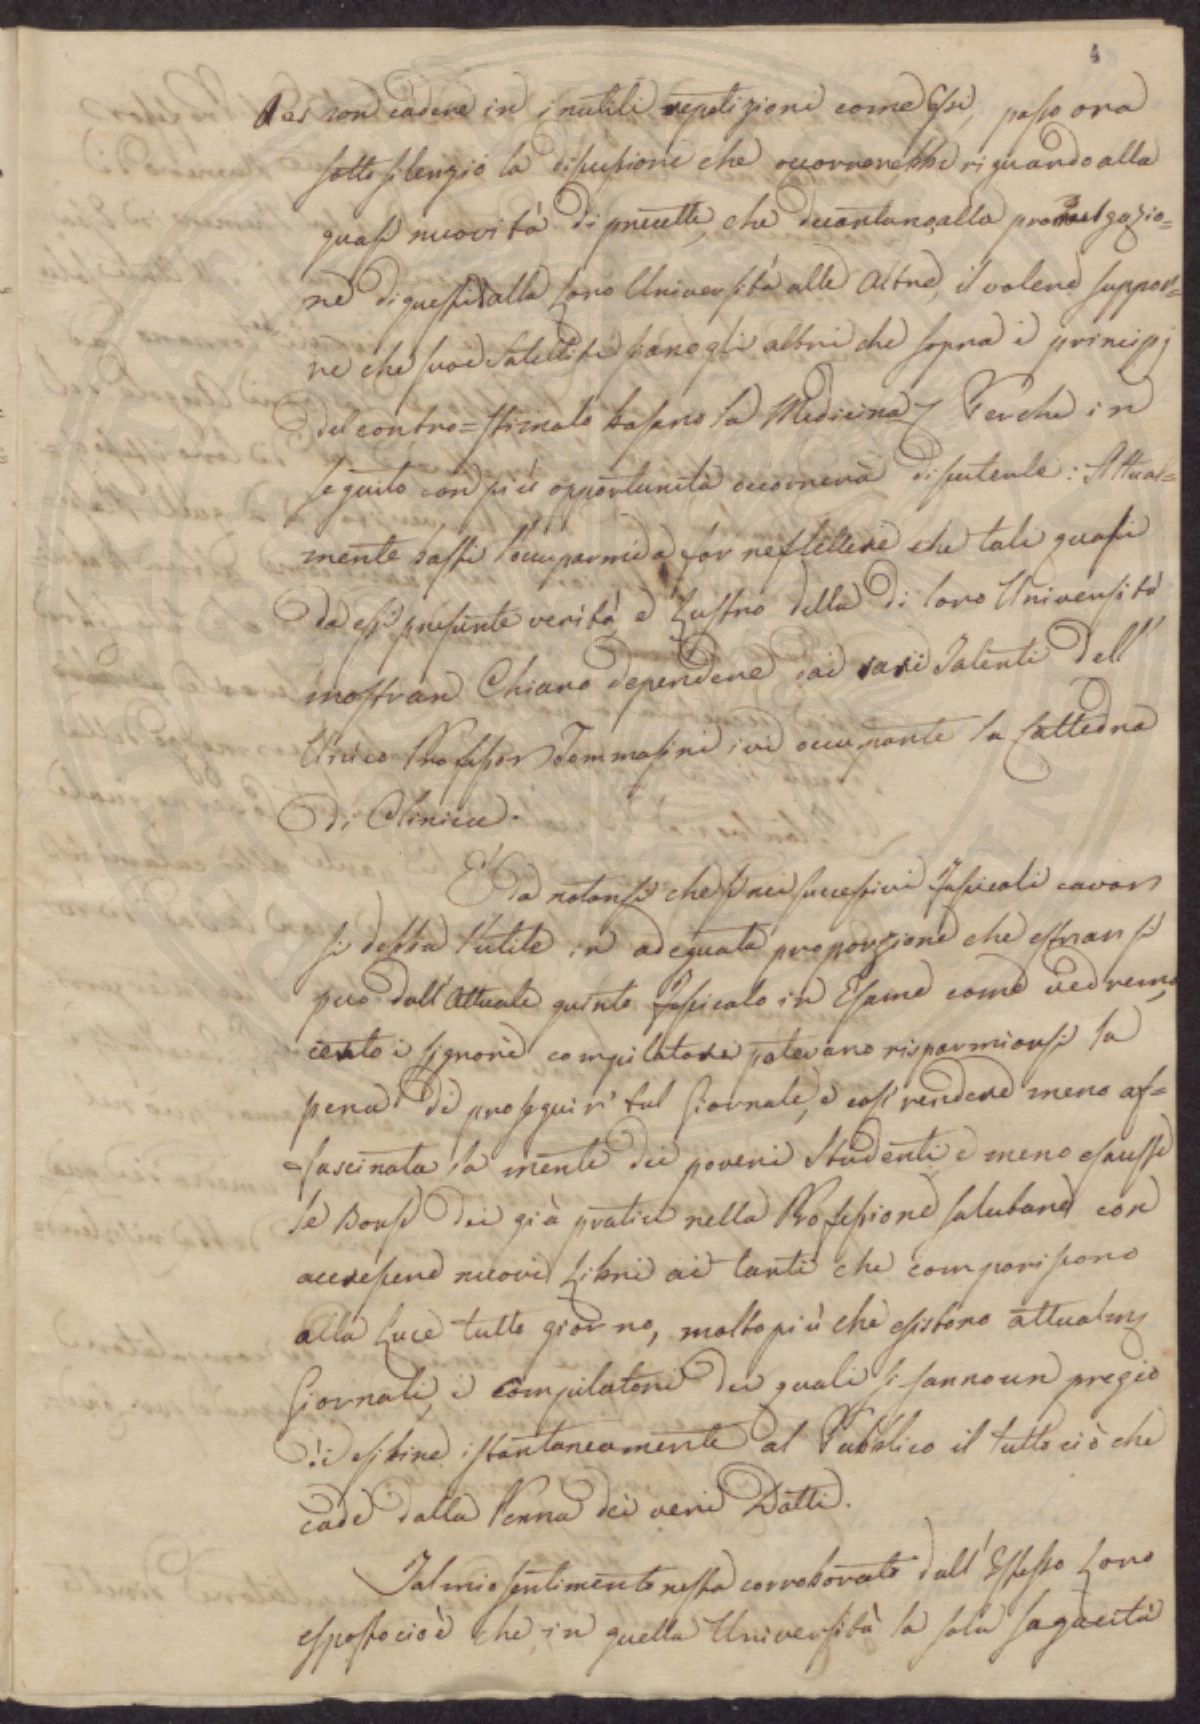 4
Per non cadere in inutili repetizioni come Essi, passo ora
sotto silenzio la discussione che occorrerebbe riguardo alla
quasi nuovità di precetti, che decantano, alla
ne di questi dalla loro Università alle Altre, il volere suppor=
re che suoi Satelliti siano gli altri che sopra i principj
del contro=stimolo basano la Medicina Perche in
seguito con più opportunità occorrerà discuterle: Attual=
mente basti l'occuparmi a for reflettere che tali quasi
da essi presunte verità, e Lustro della di loro Università
mostran Chiaro dependere dai rari Talenti dell'
Unico Professor Tommasini ivi occupante la Cattedra
di Clinica.
E' da notarsi che se nei successivi Fascicoli cavar
si debba l'utile in adeguata proporzione che estrar si
può dall'Attuale quinto Fascicolo in Esame come vedremo,
certo i Signori compilatori potevano risparmiarsi la
pena di proseguire tal Giornale, e così rendere meno af=
fascinata la mente dei poveri Studenti, e meno esauste
le Borse dei già pratici nella Professione salutare con
accrescere nuovi Libri ai tanti che compariscono
alla Luce tutto giorno, molto più che esistono
Giornali, i Compilatori dei quali si fanno un pregio
di esibire istantaneamente al Pubblico il tutto ciò che
cade dalla Penna dei veri Dotti.
Tal mio sentimento resta corroborato dall'Istesso Loro
esposto cioè che in quella Università la sola sagacità